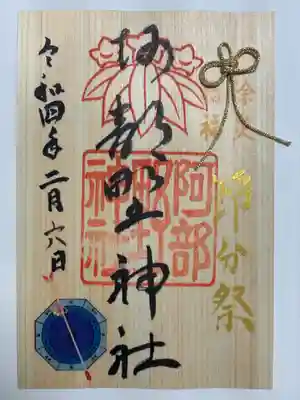 節分祭
阿部野神社
阿部野神社
令和四年二月六日